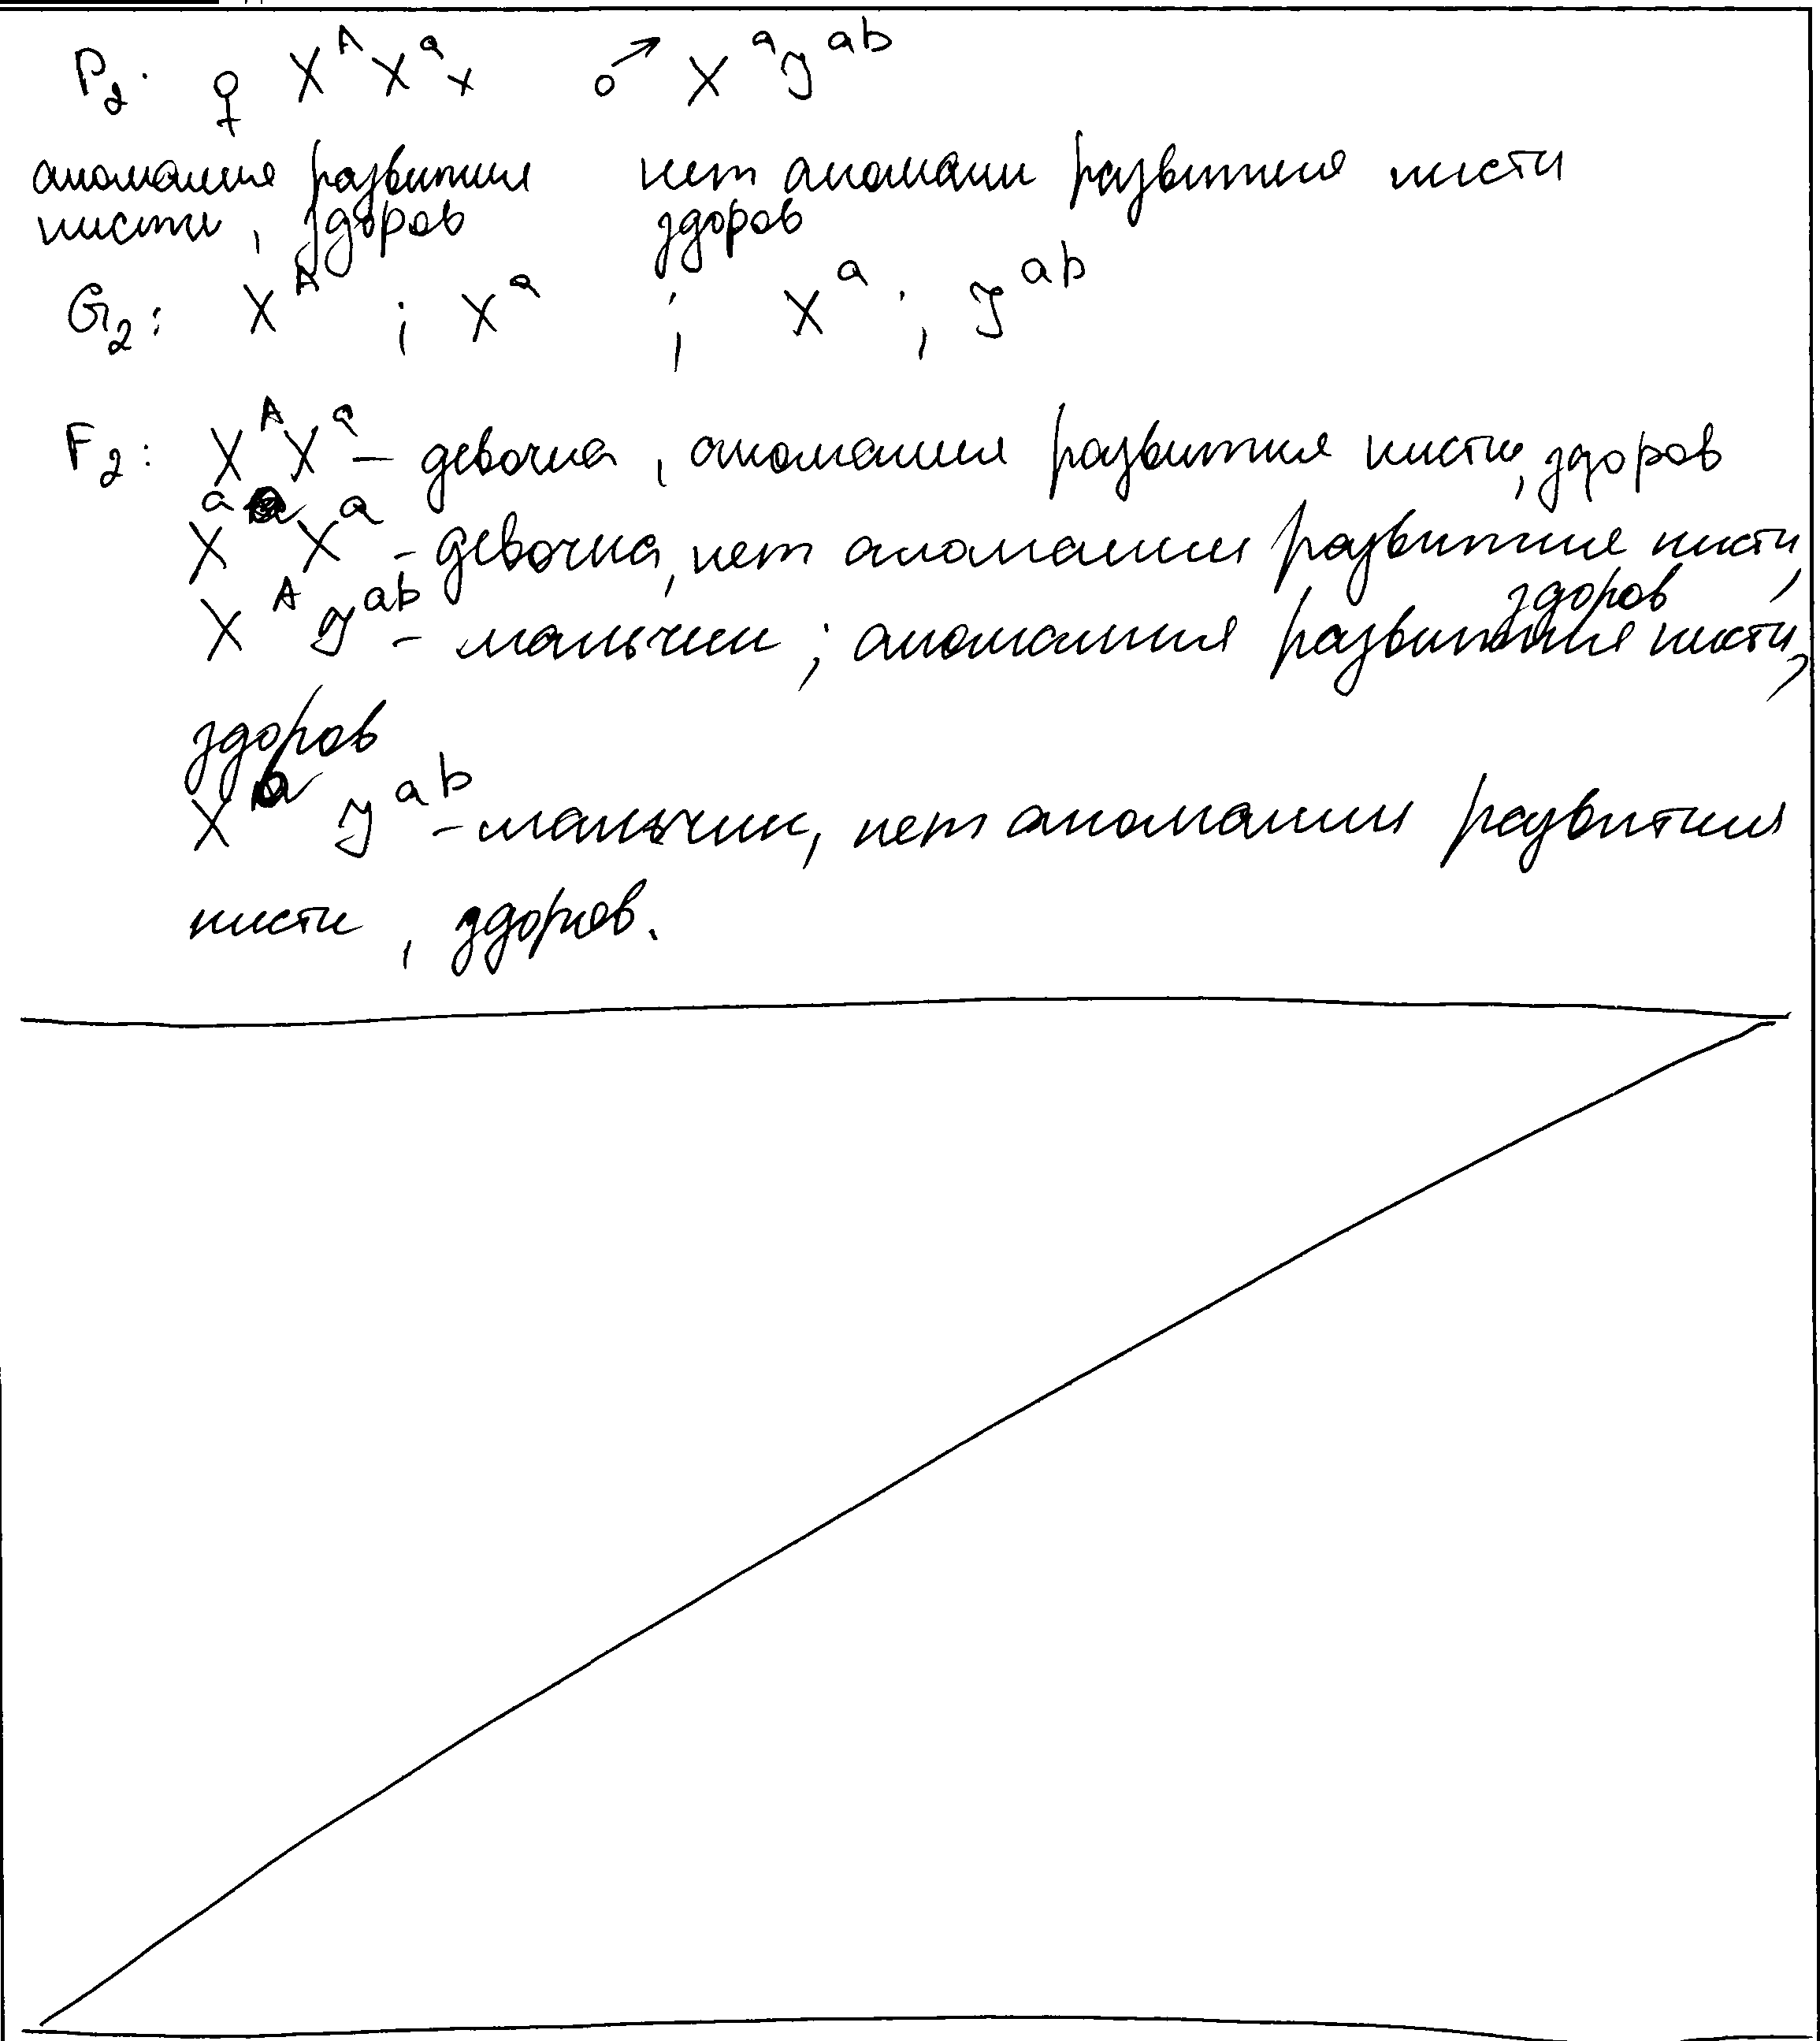 P₂. ♀ XᴬXᵃ x ♂ XᵃYᵃᵇ
аномалия развития нет аномали развития кисти
кисти, здоров здоров
G₂: Xᴬ ; Xᵃ ; Xᵃ ; Yᵃᵇ
F₂: XᴬXᵃ – девочка, аномалия развития кисти, здоров
XᵃXᵃ - девочка, нет аномалии развития кисти,
здоров
XᴬYᵃᵇ - мальчик; аномалия развития кисти,
здоров
XᵃYᵃᵇ - мальчик, нет аномалии развития
кисти, здоров.